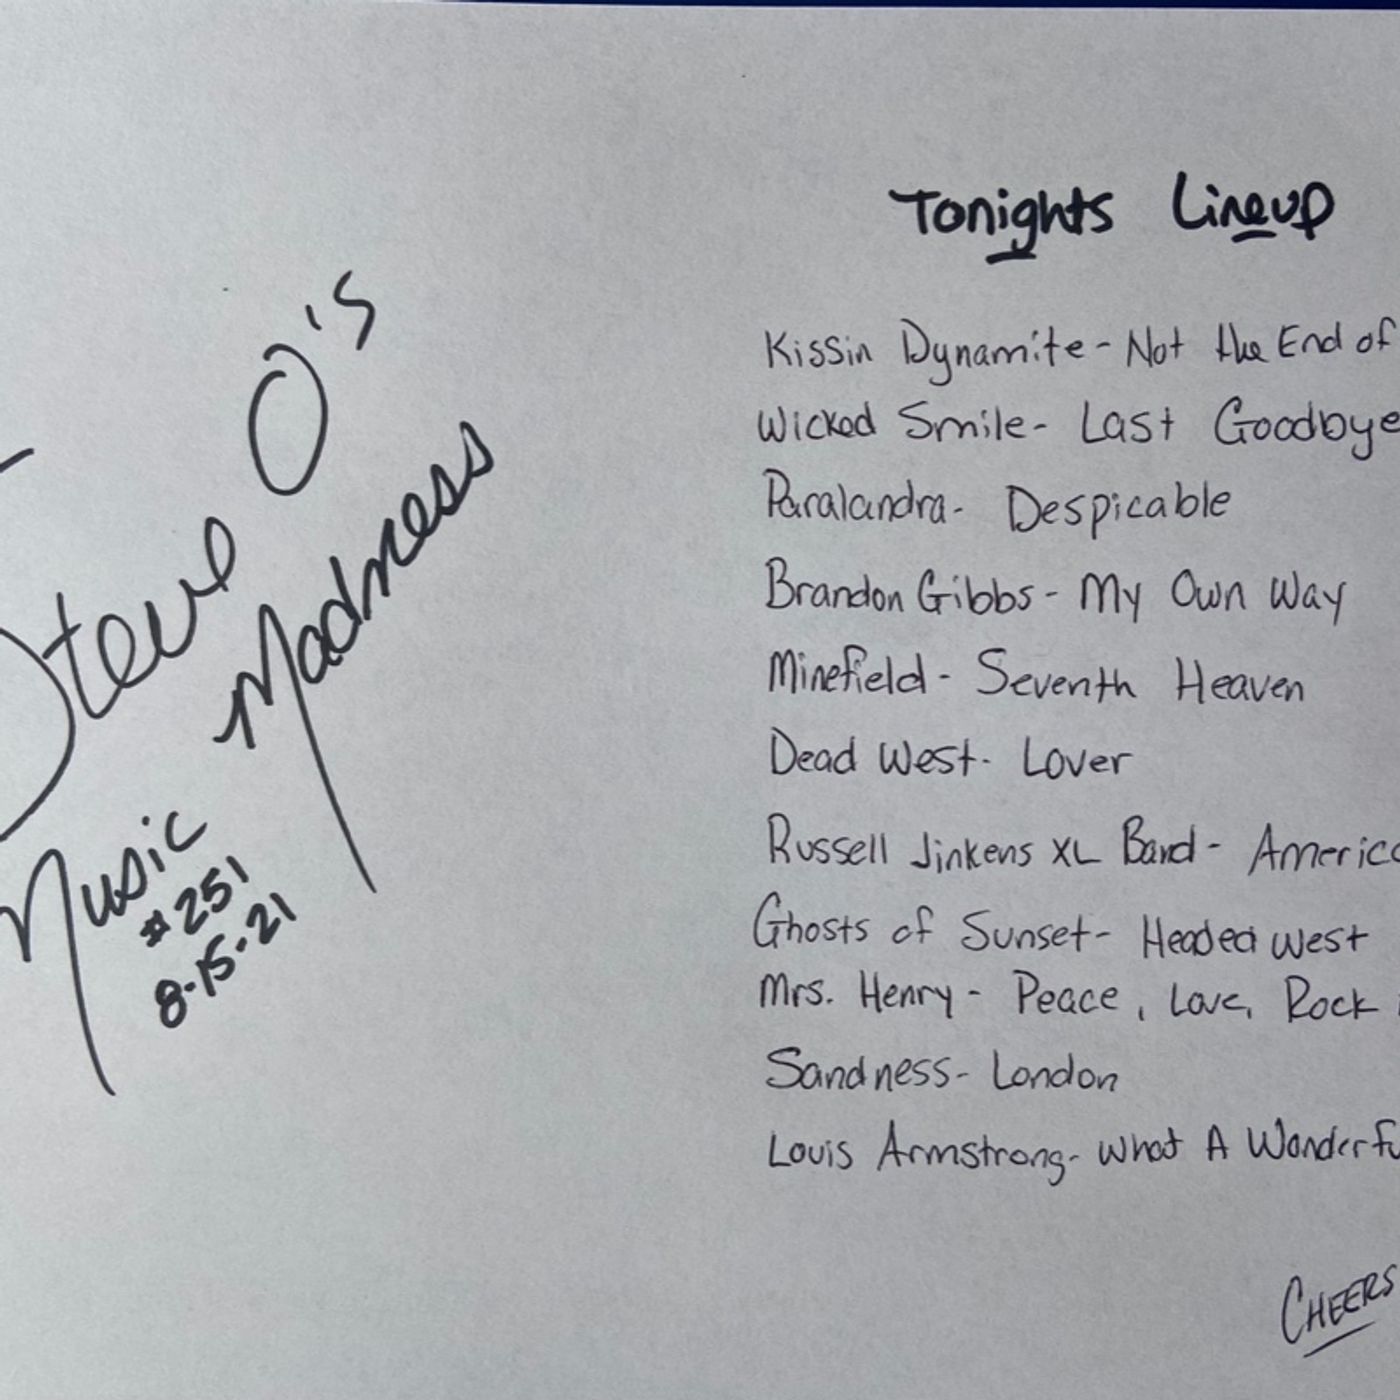 Steve O's
Madness
Music
#251
8-15-21
Tonights Lineup
Kissin Dynamite - Not the End of
Wicked Smile - Last Goodbye
Paralandra - Despicable
Brandon Gibbs - My Own Way
Minefield - Seventh Heaven
Dead West - Lover
Russell Jinkens XL Band - America
Ghosts of Sunset - Headed West
Mrs. Henry - Peace, Love, Rock
Sandness - London
Louis Armstrong - What A Wonderfu
CHEERS